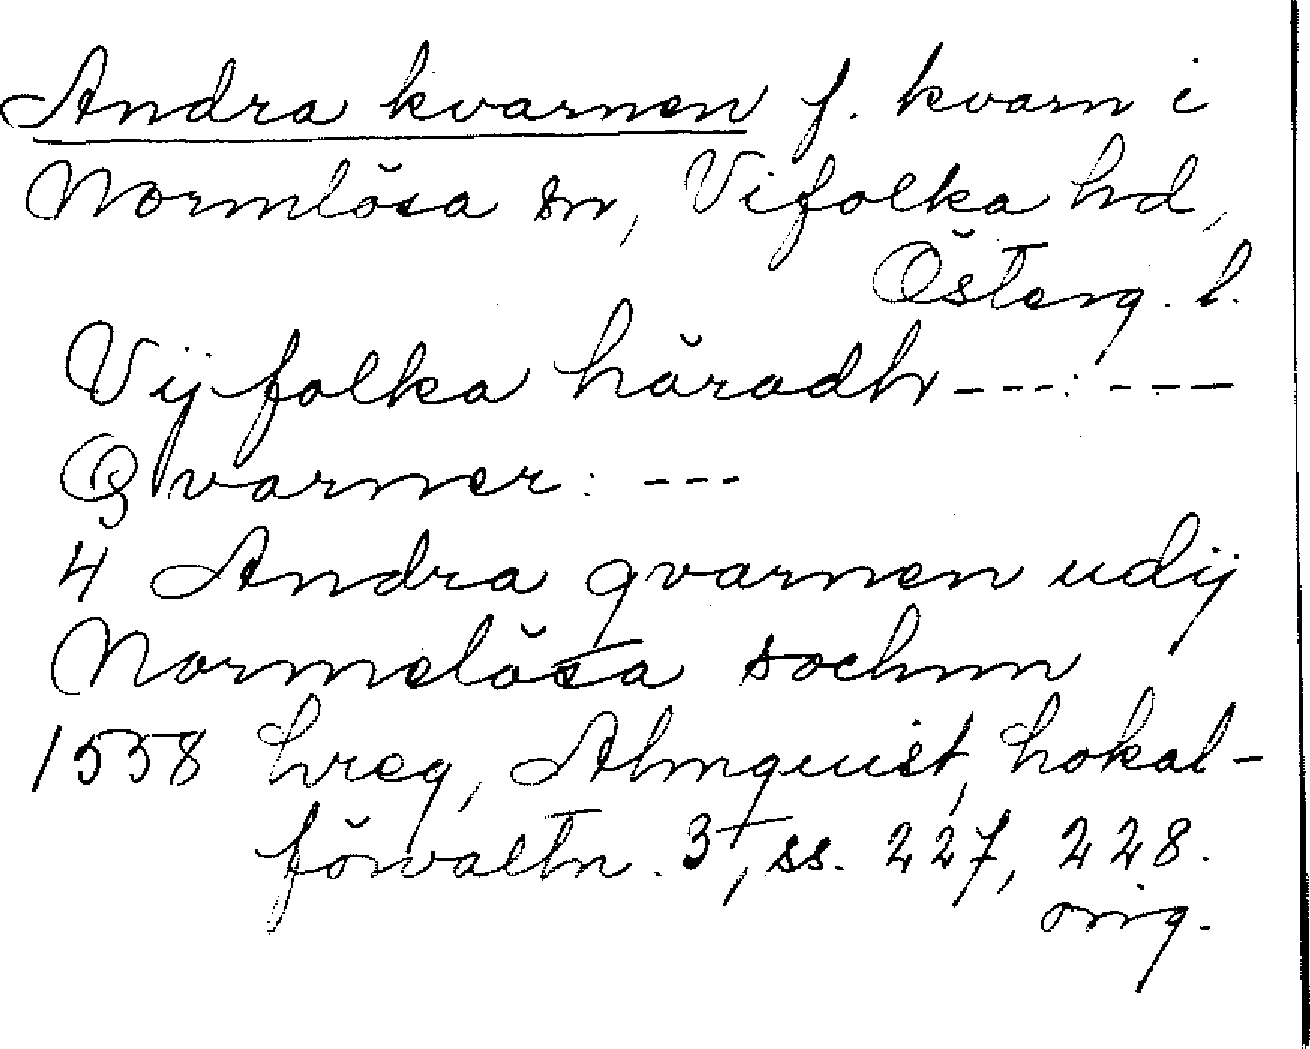 Andra kvarnen f. kvarn i
Normlösa sn, Vifolka hd,
Österg. l.
Vijfolka häradh ---:---
Qvarner: ---
4 Andra qvarnen udij
Normelösa sochnn
1558 hreg, Almquist, Lokal-
förvaltn. 3, ss. 227, 228.
orig.